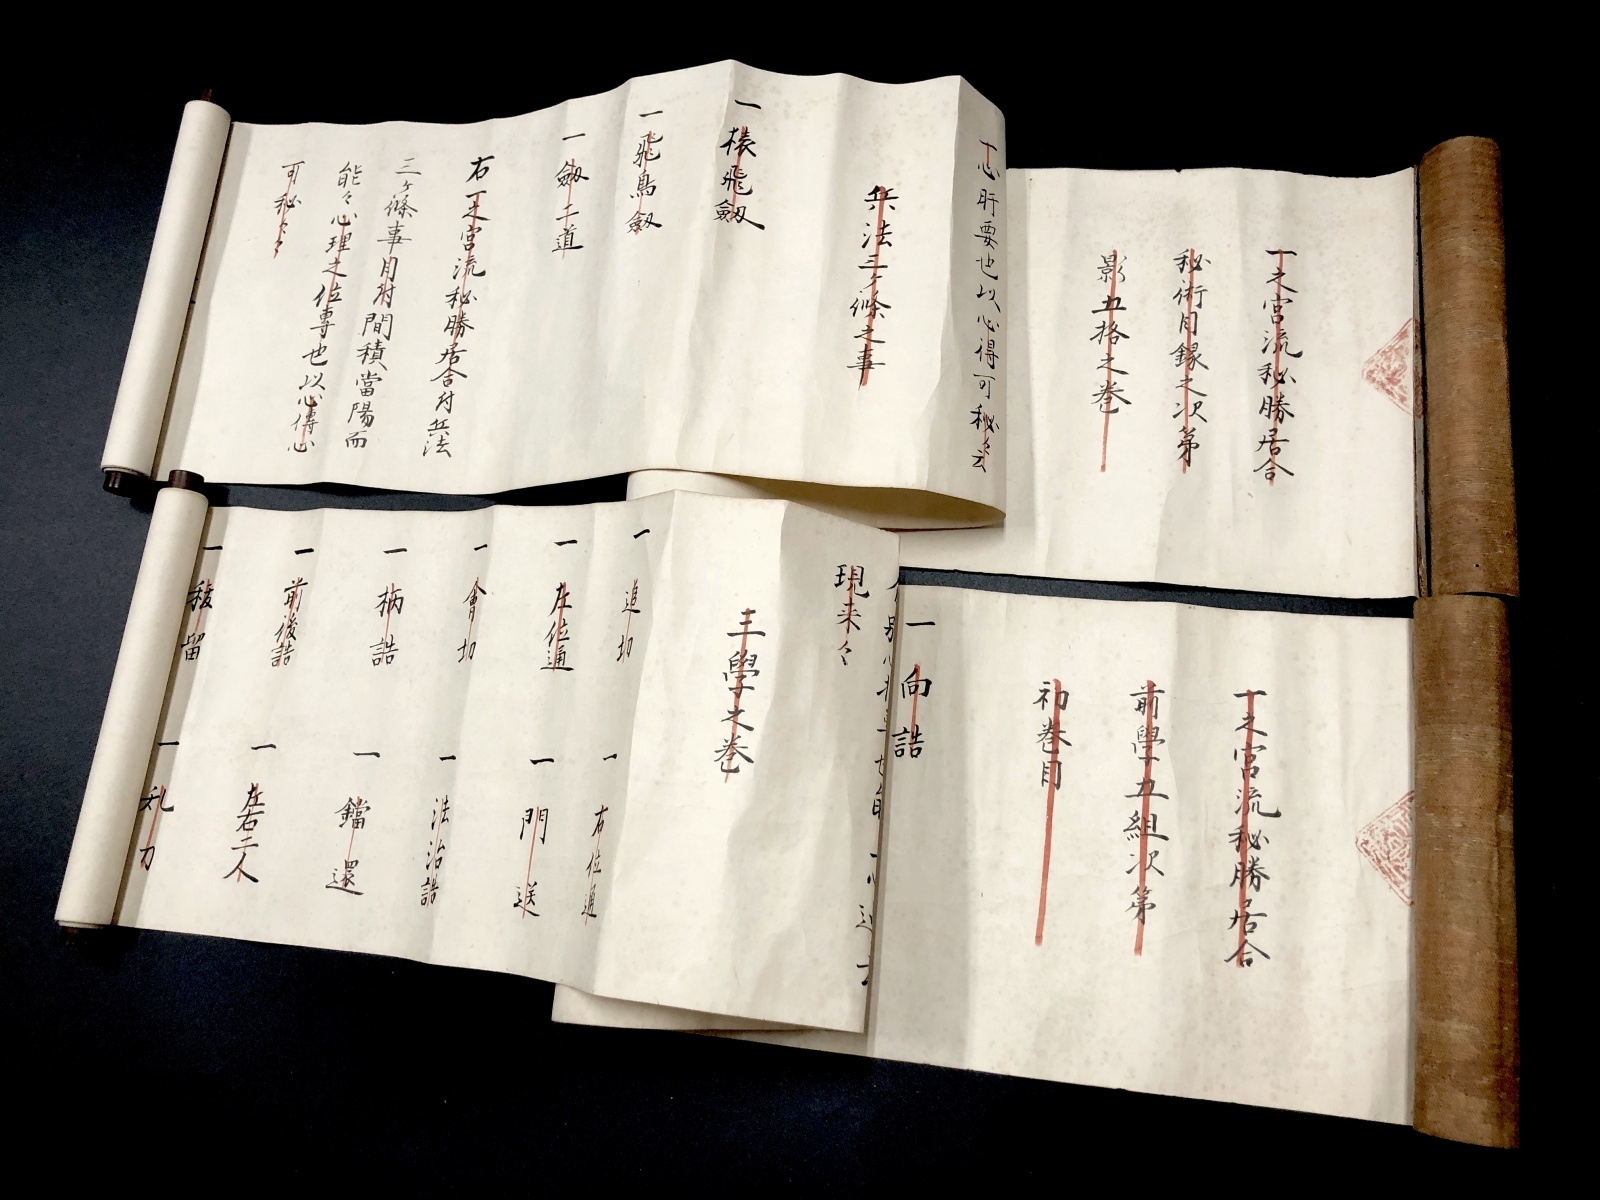 一之宮流秘勝居合
秘術目録之次第
影五格之巻
心肝要也以心得可秘々云
兵法三ヶ條之事
一 猿飛劔
一 飛鳥劔
一 劔二道
右一之宮流秘勝居合付兵法
三ヶ條事目付間積當陽而
能々心理之位專也以心傳心
可秘々々
一之宮流秘勝居合
前學五組次第
初巻目
一 向詰
現来々
三學之巻
一 追切
一 右位通
一 左位通
一 門送
一 會切
一 法治詰
一 柄詰
一 鐺還
一 前後詰
一 左右二人
一 稜留
一 乱刀